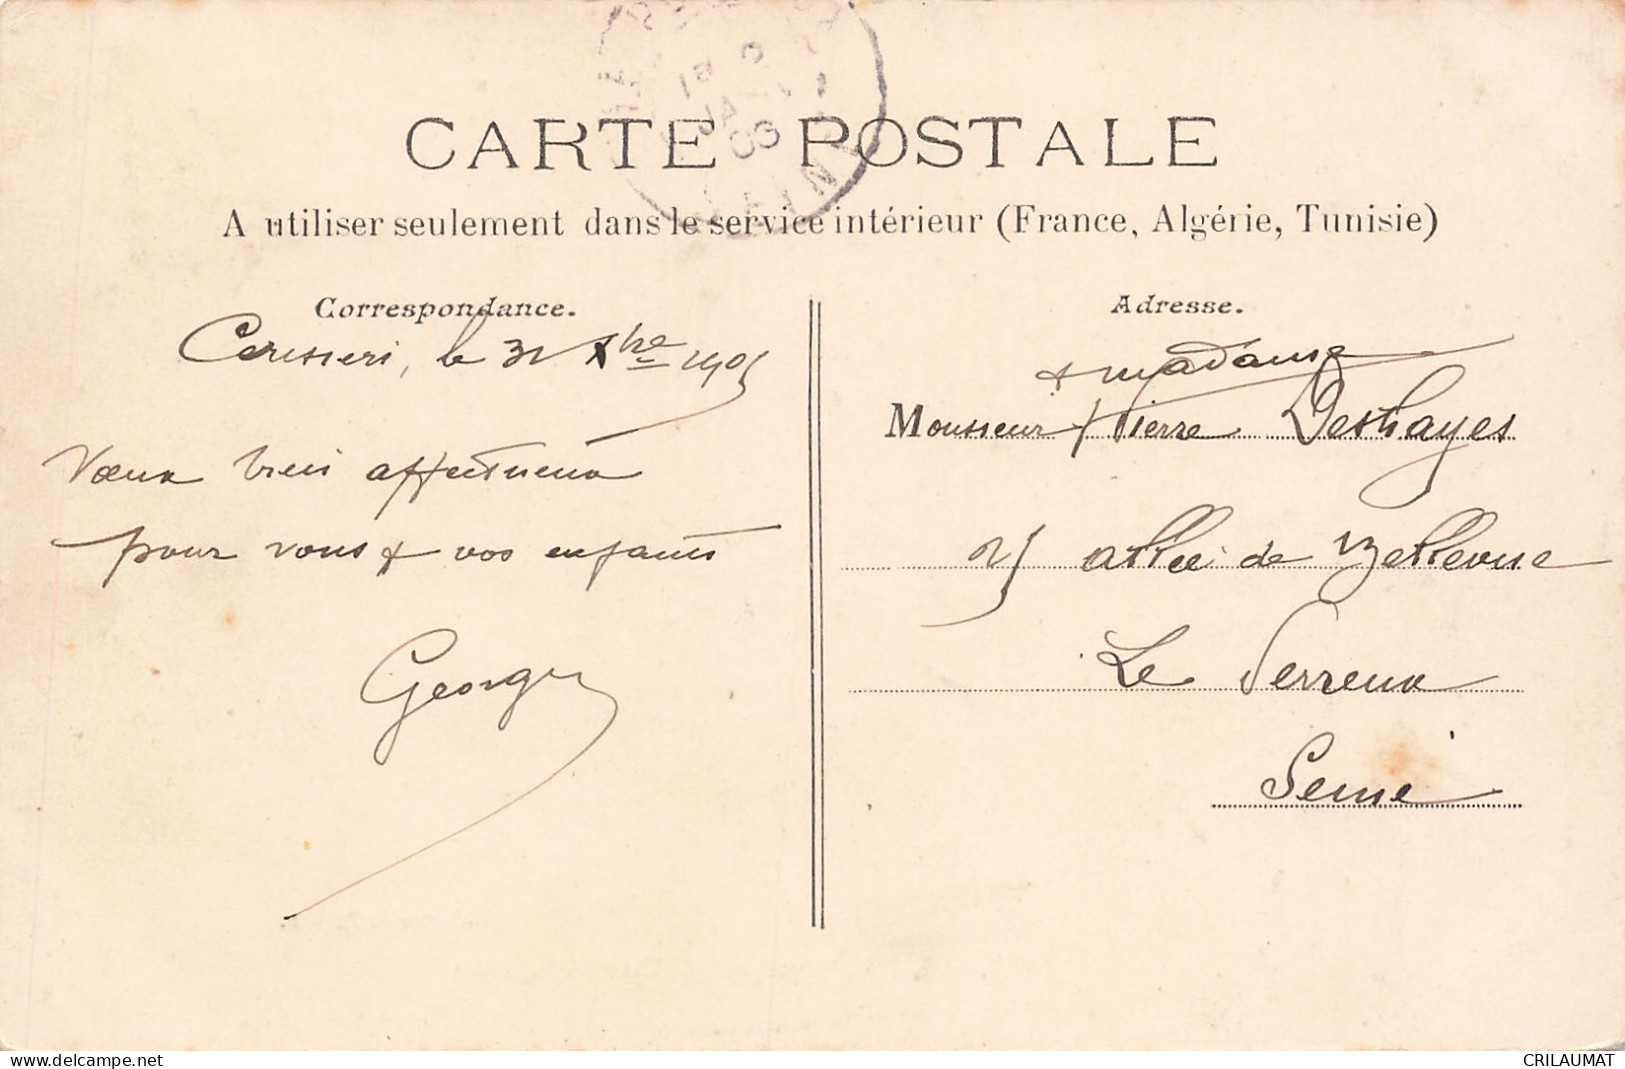 CARTE POSTALE
A utiliser seulement dans le service intérieur (France, Algérie, Tunisie)
Correspondance.
Cerisiers, le 31 Xbre 1905
Vœux bien affectueux
pour vous & vos enfants
Georges
Adresse.
& madame
Monsieur Pierre Deshayes
25 allée de Bellevue
Le Perreux
Seine
www.delcampe.net
CRILAUMAT